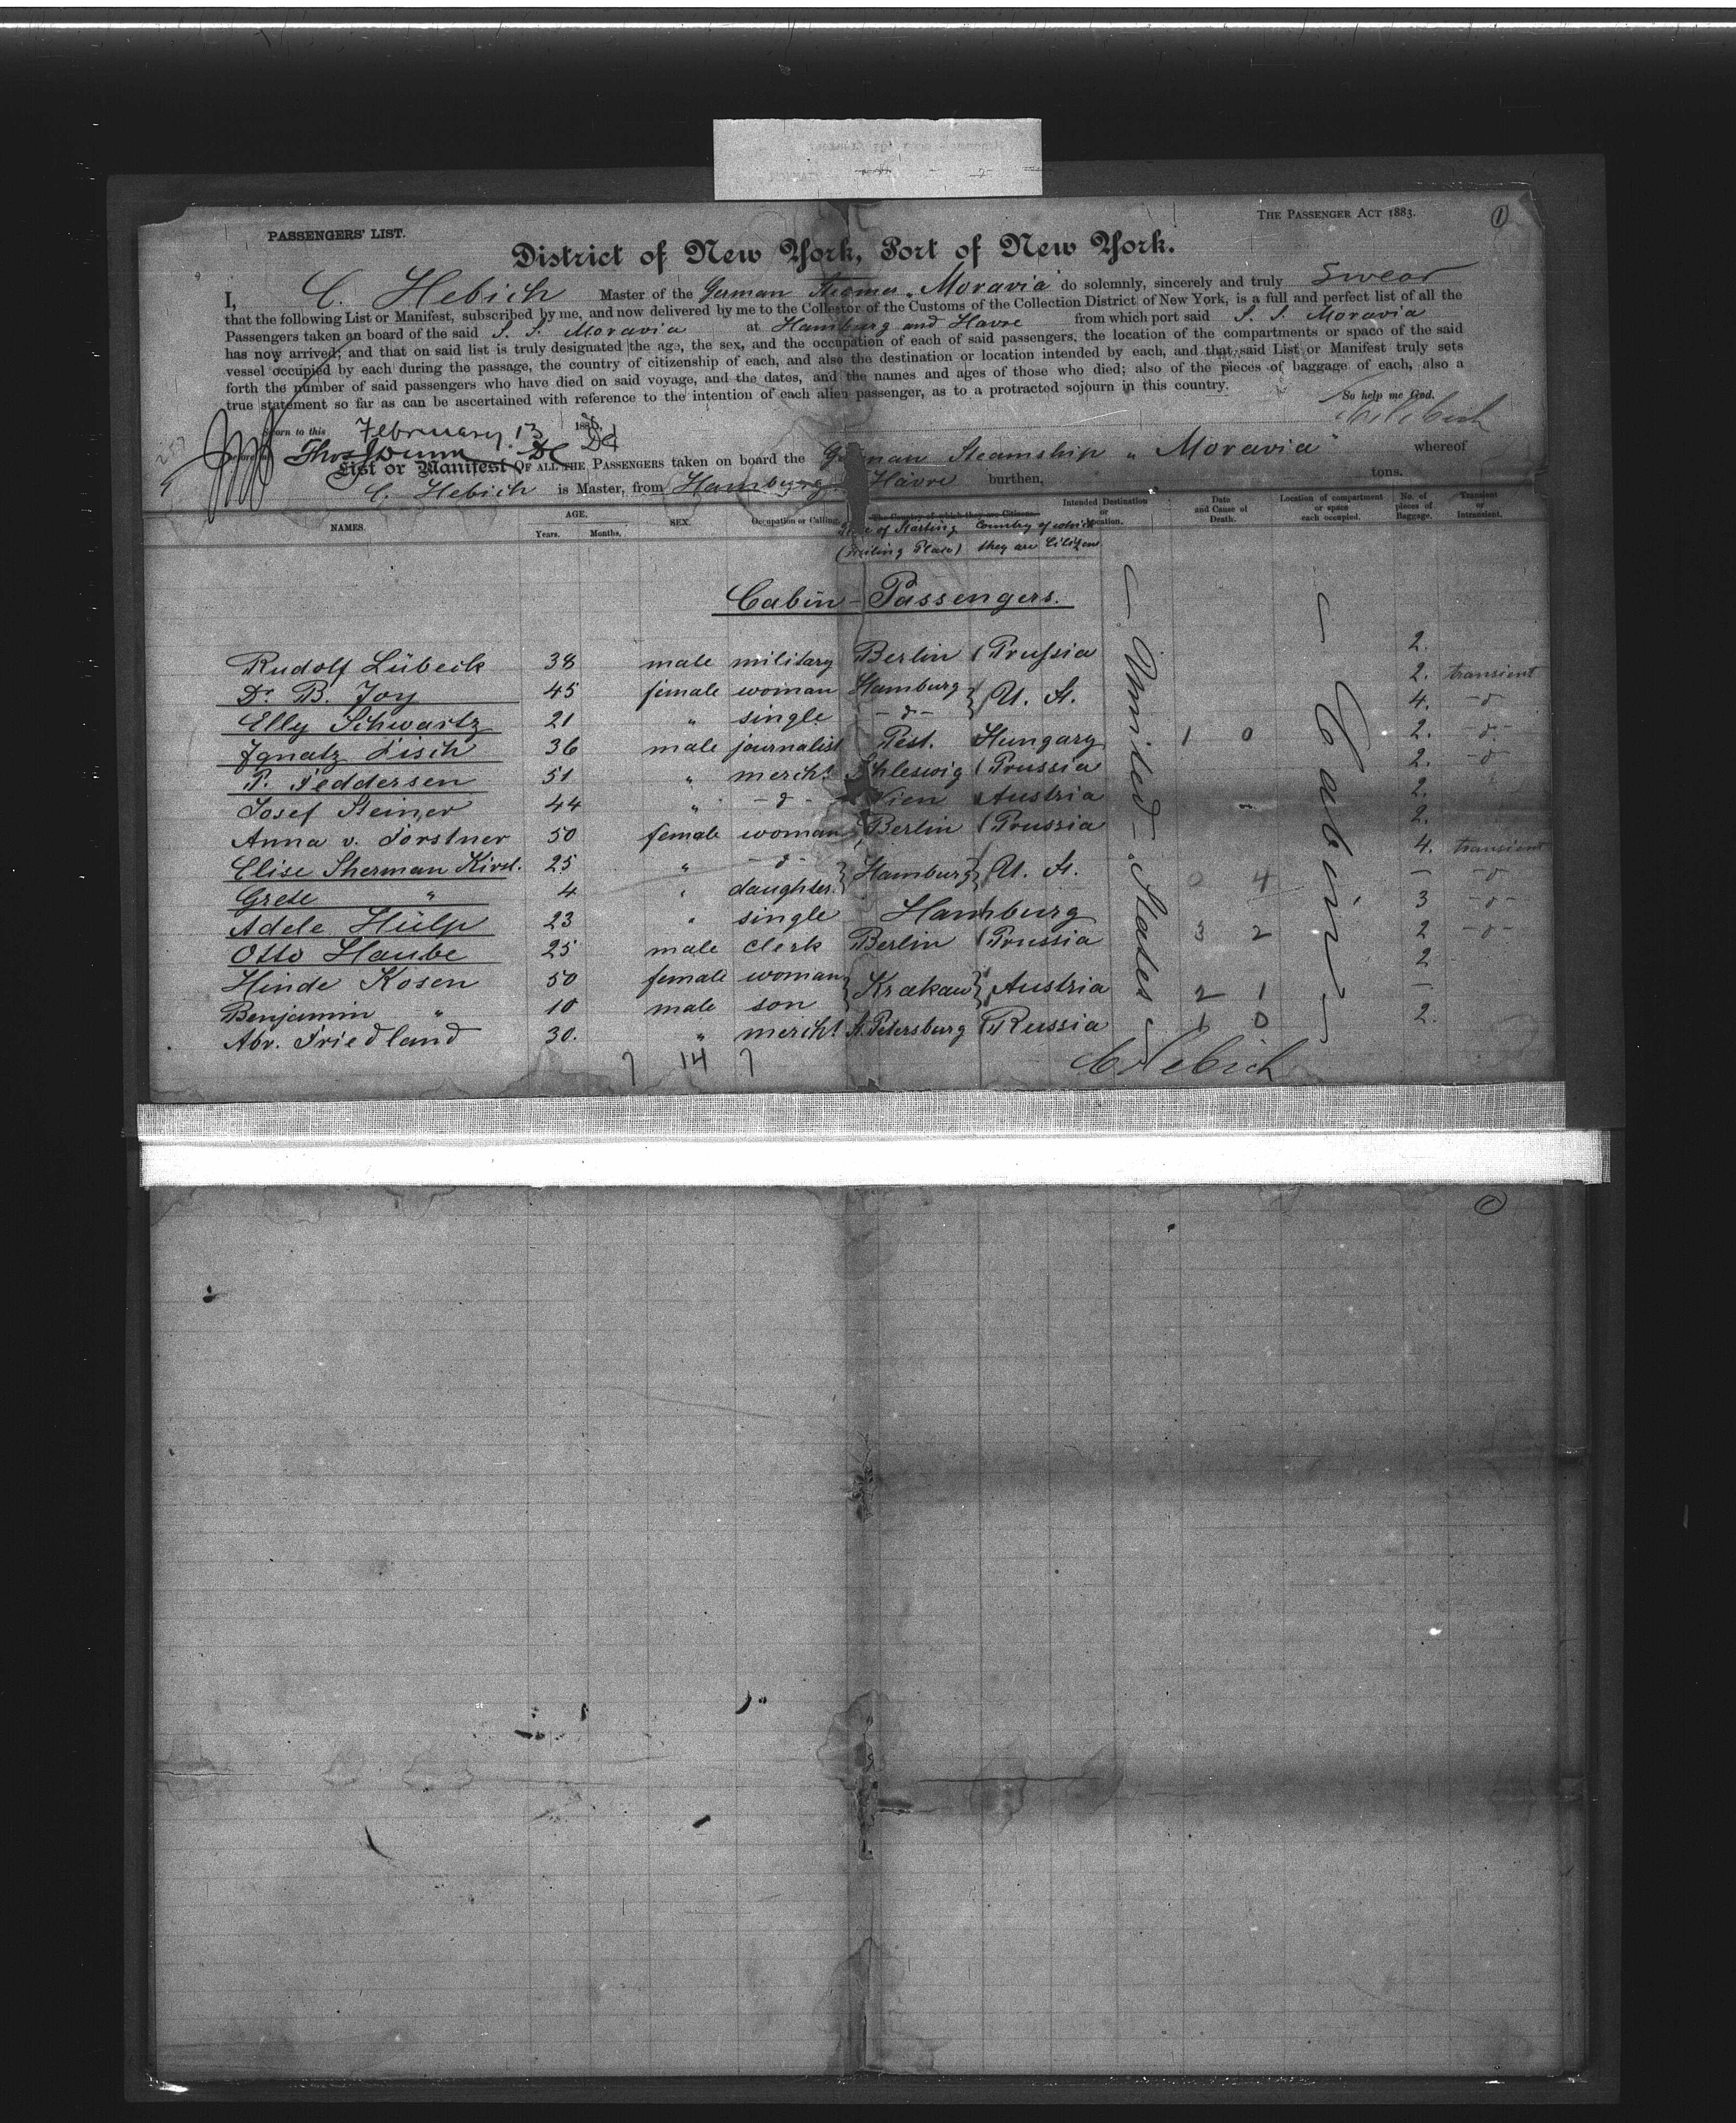 THE PASSENGER ACT 1883. 1
PASSENGERS' LIST.
District of New York, Port of New York.
I, C. Hebich Master of the German Steamer "Moravia" do solemnly, sincerely and truly swear
that the following List or Manifest, subscribed by me, and now delivered by me to the Collector of the Customs of the Collection District of New York, is a full and perfect list of all the
Passengers taken on board of the said S. S. Moravia at Hamburg and Havre from which port said S. S. Moravia
has now arrived; and that on said list is truly designated the age, the sex, and the occupation of each of said passengers, the location of the compartments or space of the said
vessel occupied by each during the passage, the country of citizenship of each, and also the destination or location intended by each, and that said List or Manifest truly sets
forth the number of said passengers who have died on said voyage, and the dates, and the names and ages of those who died; also of the pieces of baggage of each, also a
true statement so far as can be ascertained with reference to the intention of each alien passenger, as to a protracted sojourn in this country.
So help me God.
Sworn to this February 13 188
C Hebich
before Thos J Dunn
List or Manifest OF ALL THE PASSENGERS taken on board the German Steamship "Moravia" whereof
C. Hebich is Master, from Hamburg Havre burthen, tons.
NAMES. AGE. Years. Months. SEX. Occupation or Calling. The Country of which they are Citizens. Intended Destination or Location. Date and Cause of Death. Location of compartment or space each occupied. No. of pieces of Baggage. Transient or Intransient.
Place of Starting Country of which
(Mailing Place) they are Citizen
Cabin-Passengers.
Rudolf Lübeck 38 male military Berlin Prussia 2.
Dr. B. Joy 45 female woman Hamburg } U. St. 2. transient
Elly Schwartz 21 " single -d- 4. -d-
Ignatz Lisch 36 male journalist Pest. Hungary 1 0 2. -d-
P. Feddersen 51 " mercht Schleswig Prussia 2. -d-
Josef Steiner 44 " -d- Wien Austria 2.
Anna v. Forstner 50 female woman Berlin Prussia 2.
Elise Sherman Kirst. 25 " -d- } Hamburg } U. St. 4. transient
Grete " 4 " daughter 0 4 - -d-
Adele Hülp 23 " single Hamburg 3 -d-
Otto Haube 25 male clerk Berlin Prussia 3 2 2 -d-
Hinde Kosen 50 female woman } Krakau } Austria 2
Benjamin " 10 male son 2 1 -
Abr. Friedland 30. " mercht St. Petersburg Russia 1 0 2.
United States
Cabin
7 14 7
C Hebich
1